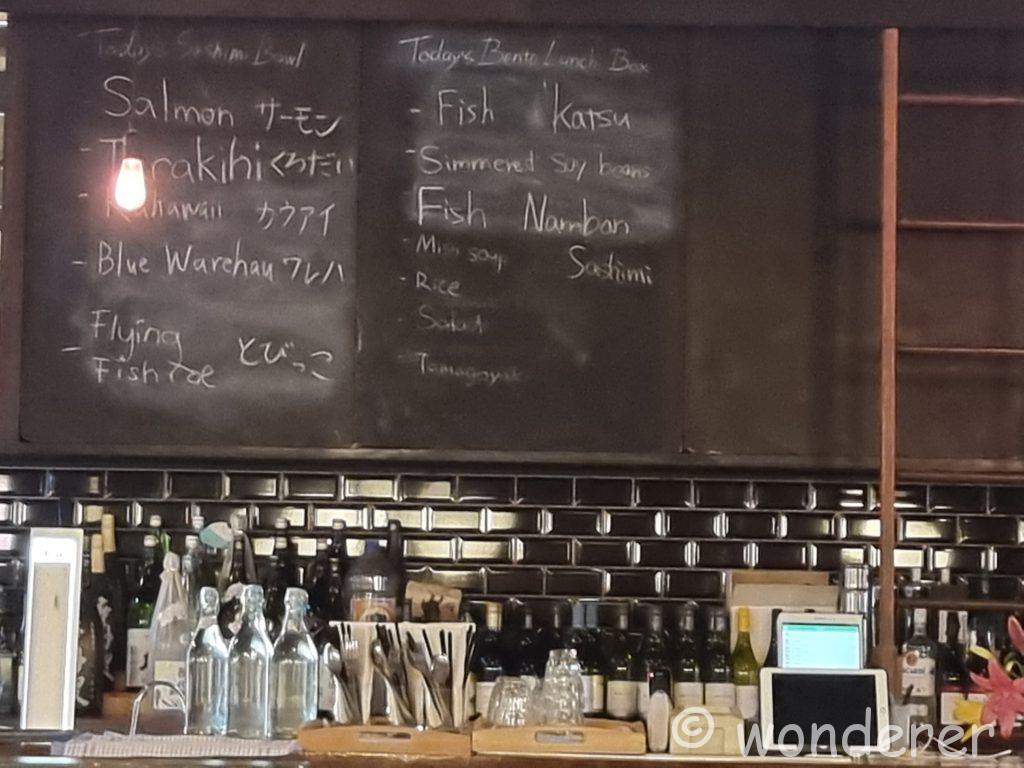 Today's Sashimi Bowl
Salmon サーモン
- Tarakihi くろだい
- Kahawaii カウアイ
- Blue Warehau ワレハ
- Flying Fish roe とびっこ
Today's Bento Lunch Box
- Fish Katsu
- Simmered soy beans
Fish Namban
- Miso soup Sashimi
- Rice
- Salad
- Tamagoyaki
© wonderer